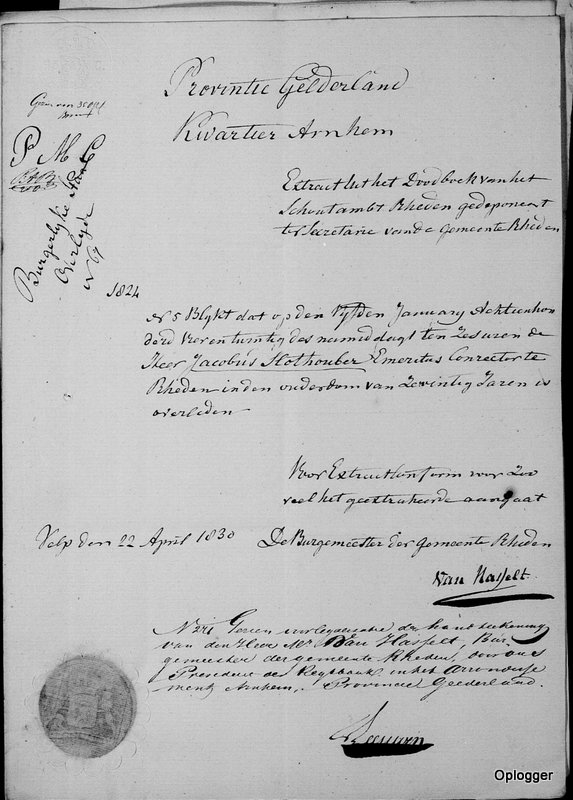 Provintie Gelderland
Kwartier Arnhem
P M C
Burgerlyke Stand
Overlyde
N 67
Extract uit het Doodboek van het
Schoutambt Rheden gedeponeert
ter Secretarie van de gemeente Rheden
1824
N 5 Blykt dat op den Vyfden January Achtienhon
derd Vierentwintig des namiddags ten Zes uren de
Heer Jacobus Slothouber Emeritus Conrector te
Rheden in den ouderdom van Zeventig Jaren is
overleden
Voor Extract conform voor Zoo
veel het geextraheerde aangaat
Velp den 22 April 1830
De Burgemeester der gemeente Rheden
Van Hasselt
Gezien voor legalisatie der handteekening
van den Heer Mr Van Hasselt, Bur
gemeester der gemeente Rheden, door ons
President der Regtbank in het Arrondisse
ment Arnhem, Provincie Gelderland.
Oplogger